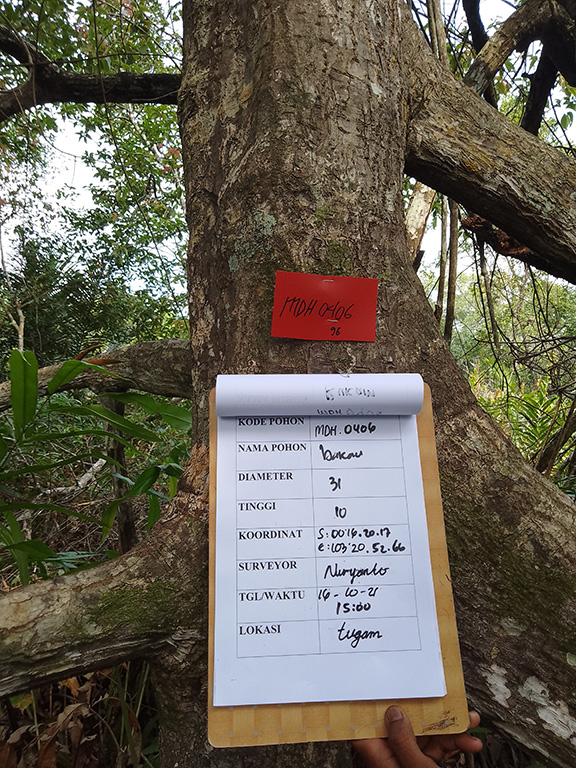 MDH 0406
96
KODE POHON MDH. 0406
NAMA POHON
DIAMETER 31
TINGGI 10
KOORDINAT S: 00'16.20.17
e: 103'20.52.66
SURVEYOR Niryanto
TGL/WAKTU 16 - 10 - 21
15:00
LOKASI tugam